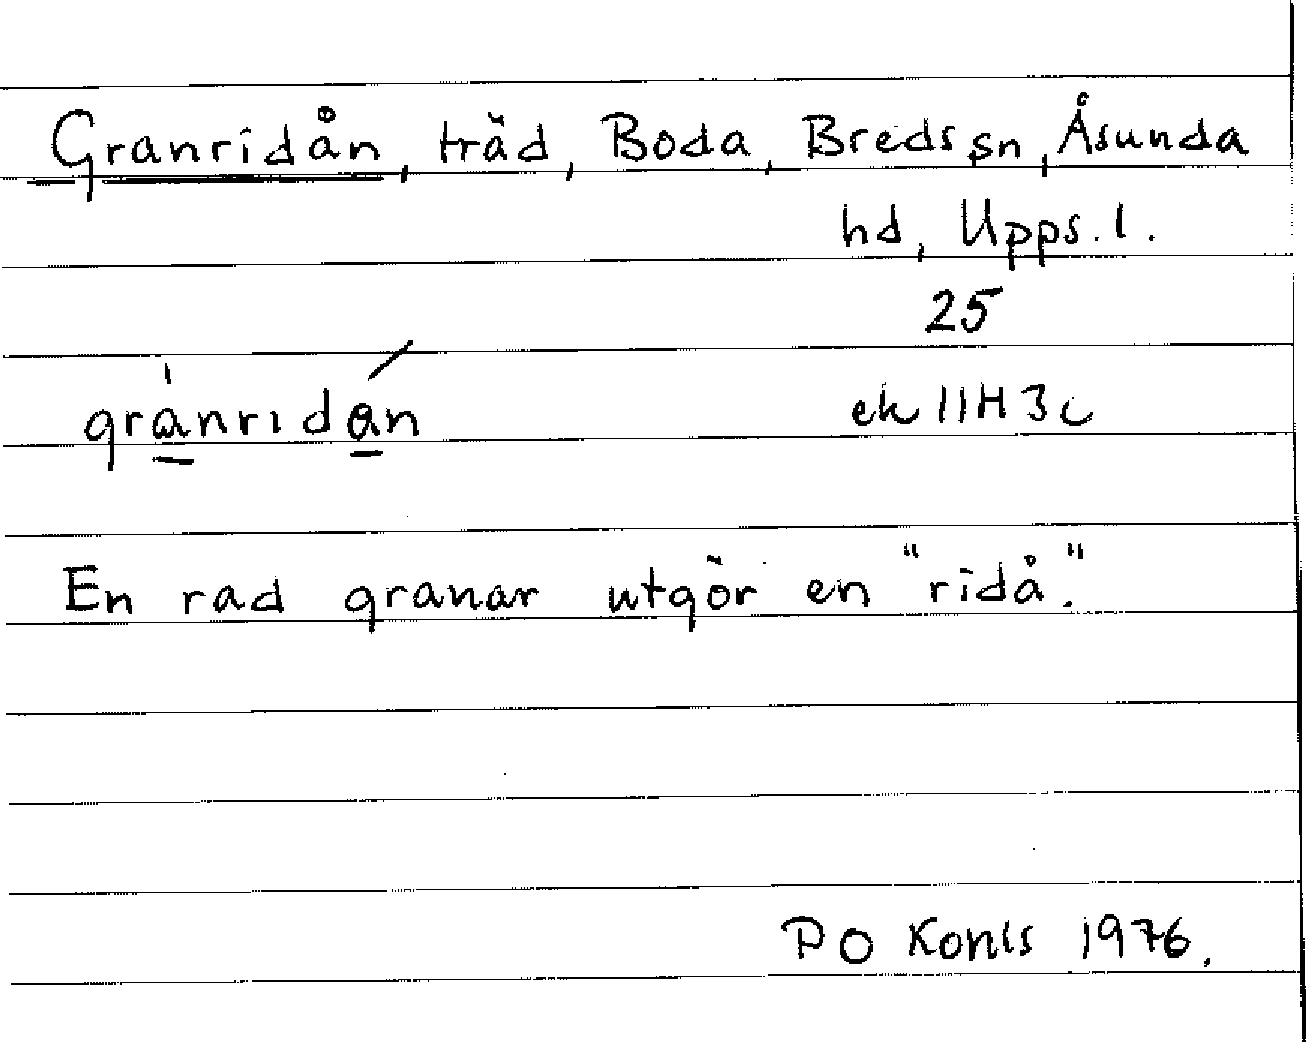 Granridån, träd, Boda, Breds sn, Åsunda
hd, Upps. l.
25
grànridán ek 11H 3c
En rad granar utgör en "ridå".
P O Konls 1976.